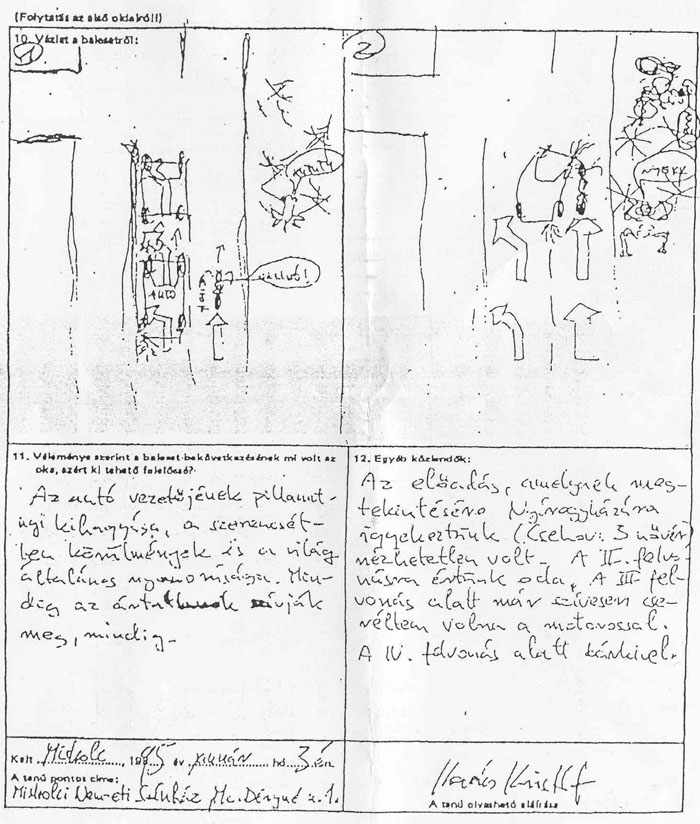 (Folytatás az első oldalról!)
10. Vázlat a balesetről:
1
2
AUTÓ
11. Véleménye szerint a baleset bekövetkezésének mi volt az
oka, azért ki tehető felelőssé?
Az autó vezetőjének pillanat-
nyi kihagyása, a szerencsét-
len körülmények és a világ
általános nyomorúsága. Min-
dig az ártatlanok szívják
meg, mindig.
12. Egyéb közlendők:
Az előadás, amelynek meg-
tekintésére Nyíregyházára
igyekeztünk (Csehov: 3 nővér)
nézhetetlen volt. A II. felvo-
násra értünk oda. A III. fel-
vonás alatt már szívesen cse-
réltem volna a motorossal.
A IV. felvonás alatt bárkivel.
Kelt Miskolc, 1995 év január hó 3.-án
A tanú pontos címe:
Miskolci Nemzeti Színház Mc. Déryné u. 1.
A tanú olvasható aláírása